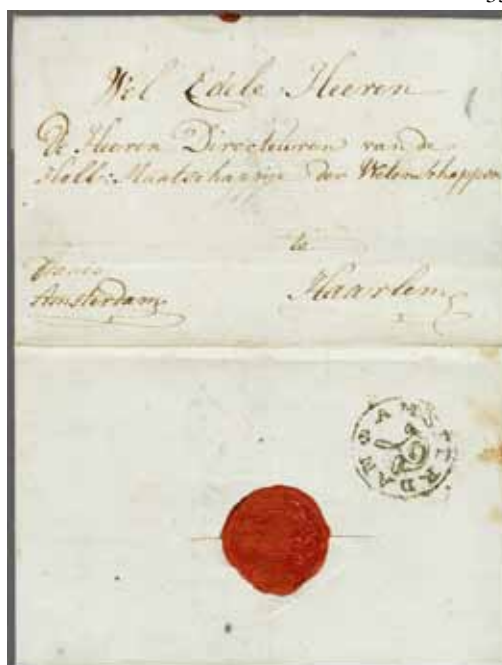 Wel Edele Heeren
De Heeren Directeuren van de
Holl: Maatschappije der Wetenschappen
te
Haarlem
franco
Amsterdam
AMSTERDAM